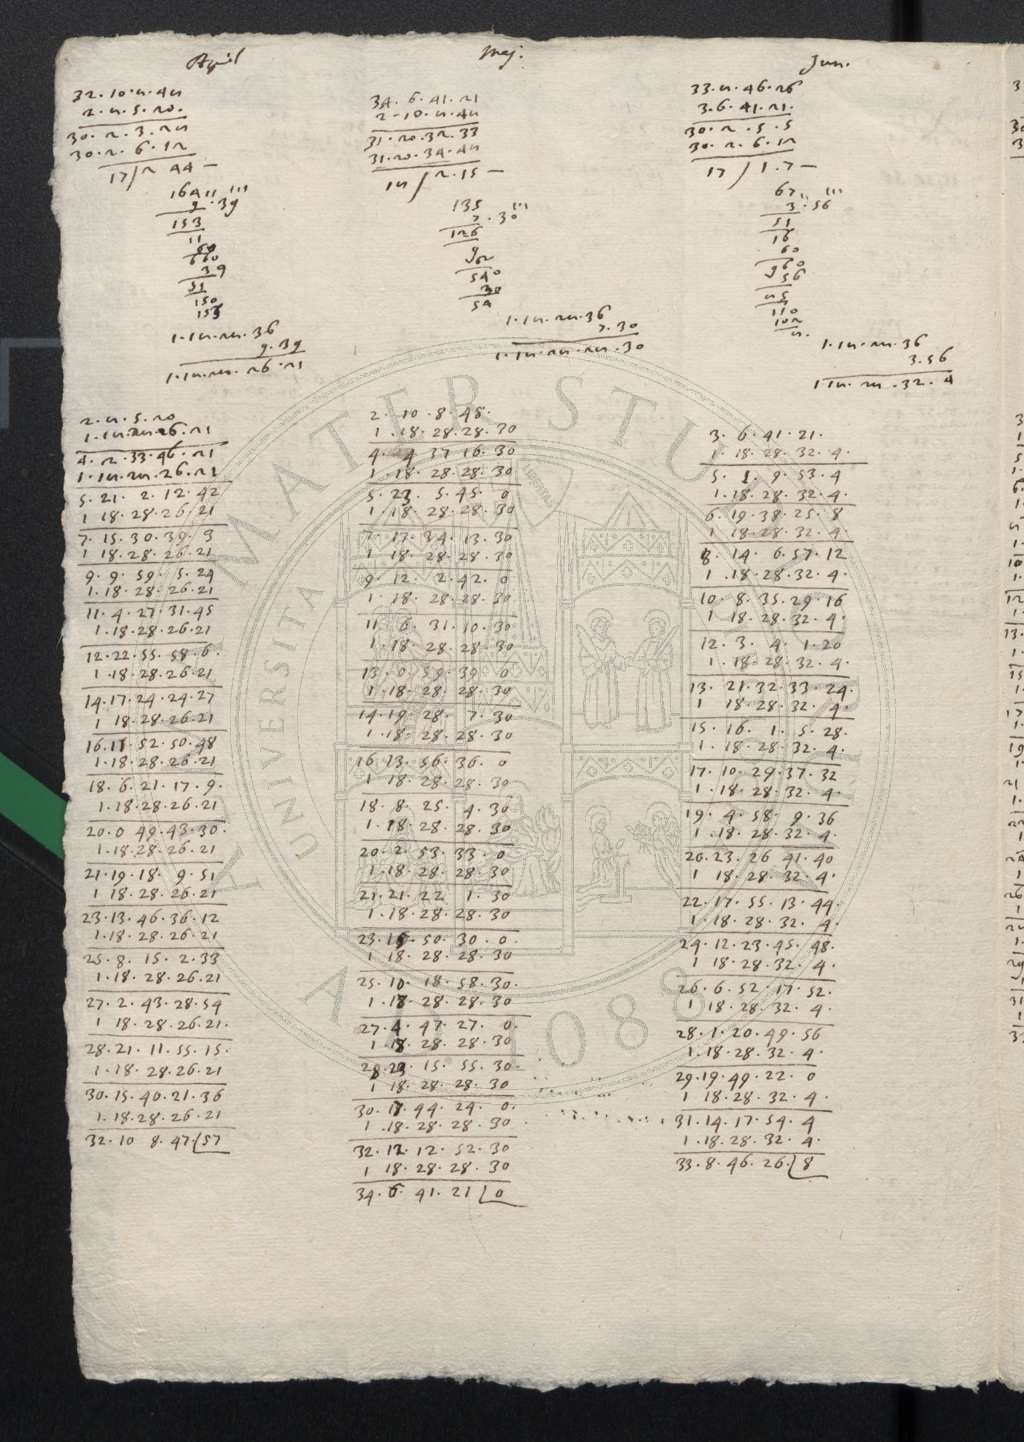 April
32.10.8.48
2.8.5.20.
30.2.3.28
30.2.6.12
17/2 44 —
164'' '''
9.39
153
11
60
660
39
51
150
153
1.18.28.36
9.39
1.18.28.26.21
2.8.5.20
1.18.28.26.21
4.2.33.46.21
1.18.28.26.21
5.21.2.12.42
1 18.28.26.21
7.15.30.39.3
1 18.28.26.21
9.9.59.5.24
1.18.28.26.21
11.4.27.31.45
1.18.28.26.21
12.22.55.58.6.
1.18.28.26.21
14.17.24.24.27
1 18.28.26.21
16.11.52.50.48
1.18.28.26.21
18.6.21.17.9.
1.18.28.26.21
20.0 49.43.30.
1.18.28.26.21
21.19.18.9.51
1 18.28.26.21
23.13.46.36.12
1.18.28.26.21
25.8.15.2.33
1.18.28.26.21
27.2.43.28.54
1 18.28.26.21.
28.21.11.55.15.
1.18.28.26.21
30.15.40.21.36
1.18.28.26.21
32.10 8.47.57
Maj.
34.6.41.21
2.10.8.48
31.20.32.33
31.20.34.48
18/2.15 —
135 '''
7.30
126
9
60
540
30
54
1.18.28.36
7.30
1.18.28.28.30
2.10.8.48.
1.18.28.28.30
4.4 37 16.30
1.18.28.28.30
5.23.5.45.0
1 18.28.28.30
7.17.34.13.30
1 18.28.28.30
9.12.2.42.0
1.18.28.28.30
11 6.31.10.30
1 18.28.28.30
13.0.59.39.0
1.18.28.28.30
14.19.28.7.30
1.18.28.28.30
16 13.56.36.0
1 18.28.28.30
18.8.25.4.30
1.18.28.28.30
20.2.53.33.0
1.18.28.28.30
21.21.22 1.30
1.18.28.28.30
23.16.50.30.0.
1 18.28.28.30
25.10.18.58.30.
1.18.28.28.30
27.4.47.27.0.
1 18.28.28.30
28.23.15.55.30.
1 18.28.28.30
30.17.44.24.0.
1.18.28.28.30
32.12.12.52.30
1 18.28.28.30
34.6 41.21 0
Jun.
33.8.46.26
3.6.41.21.
30.2.5.5
30.2.6.12
17/1.7 —
67'' '''
3.56
51
16
60
960
56
85
110
102
8.
1.18.28.36
3.56
1 18.28.32.4
3.6.41.21.
1.18.28.32.4.
5.1.9.53.4
1.18.28.32.4.
6.19.38.25.8
1 18.28.32.4
8.14.6.57.12
1.18.28.32.4.
10.8.35.29.16
1 18.28.32.4.
12.3.4.1.20
1.18.28.32.4.
13.21.32.33.24.
1 18.28.32.4.
15.16.1.5.28.
1.18.28.32.4.
17.10.29.37.32
1.18.28.32.4.
19.4.58.9.36
1.18.28.32.4.
20.23.26 41.40
1 18.28.32.4.
22.17.55.13.44.
1.18.28.32.4.
24.12.23.45.48.
1 18.28.32.4.
26.6.52.17.52.
1 18.28.32.4.
28.1.20.49.56
1.18.28.32.4.
29.19.49.22.0
1 18.28.32.4.
31.14.17.54.4
1.18.28.32.4.
33.8.46.26.8
ALMA MATER STUDIORUM
UNIVERSITA
A.D. 1088